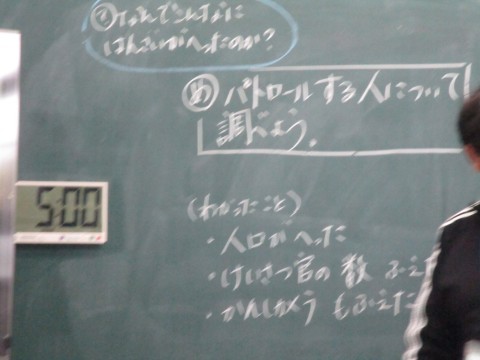 はんざいがへったのか?
め パトロールする人について
調べよう。
5:00
(わかったこと)
・人口がへった
・けいさつ官の数 ふえた
・かんしカメラ もふえた